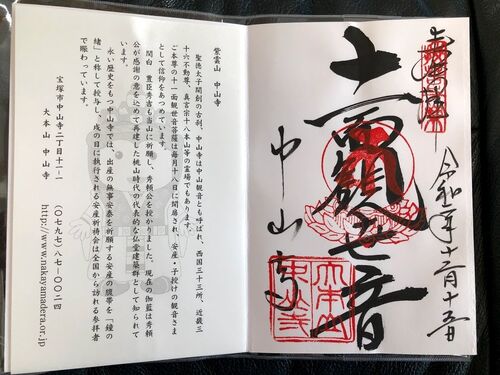 奉拝
令和元年十二月十五日
十一面観世音
中山寺
大本山
中山寺
紫雲山　中山寺
聖徳太子開創の古刹、中山寺は中山観音とも呼ばれ、西国三十三所、近畿三
十六不動尊、真言宗十八本山等の霊場でもあります。
ご本尊の十一面観世音菩薩は毎月十八日に開扉され、安産・子授けの観音さま
として信仰をあつめています。
関白　豊臣秀吉も当山に祈願し、秀頼公を授かりました。現在の伽藍は秀頼
公が感謝の意を込めて再建した桃山時代の代表的な仏堂建築群として知られて
います。
永い歴史をもつ中山寺では、出産の無事安泰を祈願する安産の腹帯を「鐘の
緒」と称して授与し、戌の日に執行される安産祈祷会は全国から訪れる参拝者
で賑わっています。
宝塚市中山寺二丁目十一ー一　(〇七九七)八七ー〇〇二四
大本山　中山寺　http://www.nakayamadera.or.jp